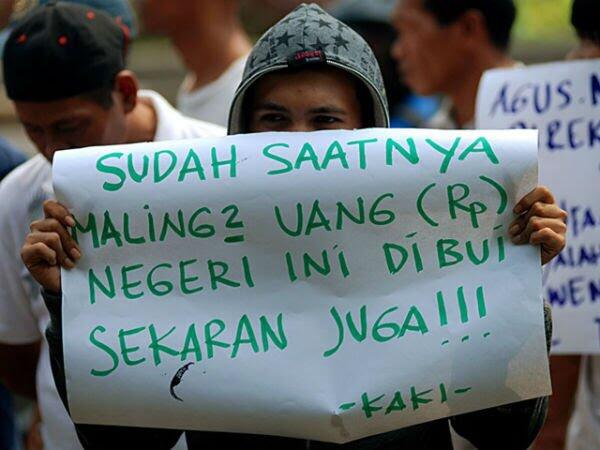 SUDAH SAATNYA
MALING2 UANG (Rp)
NEGERI INI DIBUI
SEKARAN JUGA!!!
-KAKI-
AGUS.